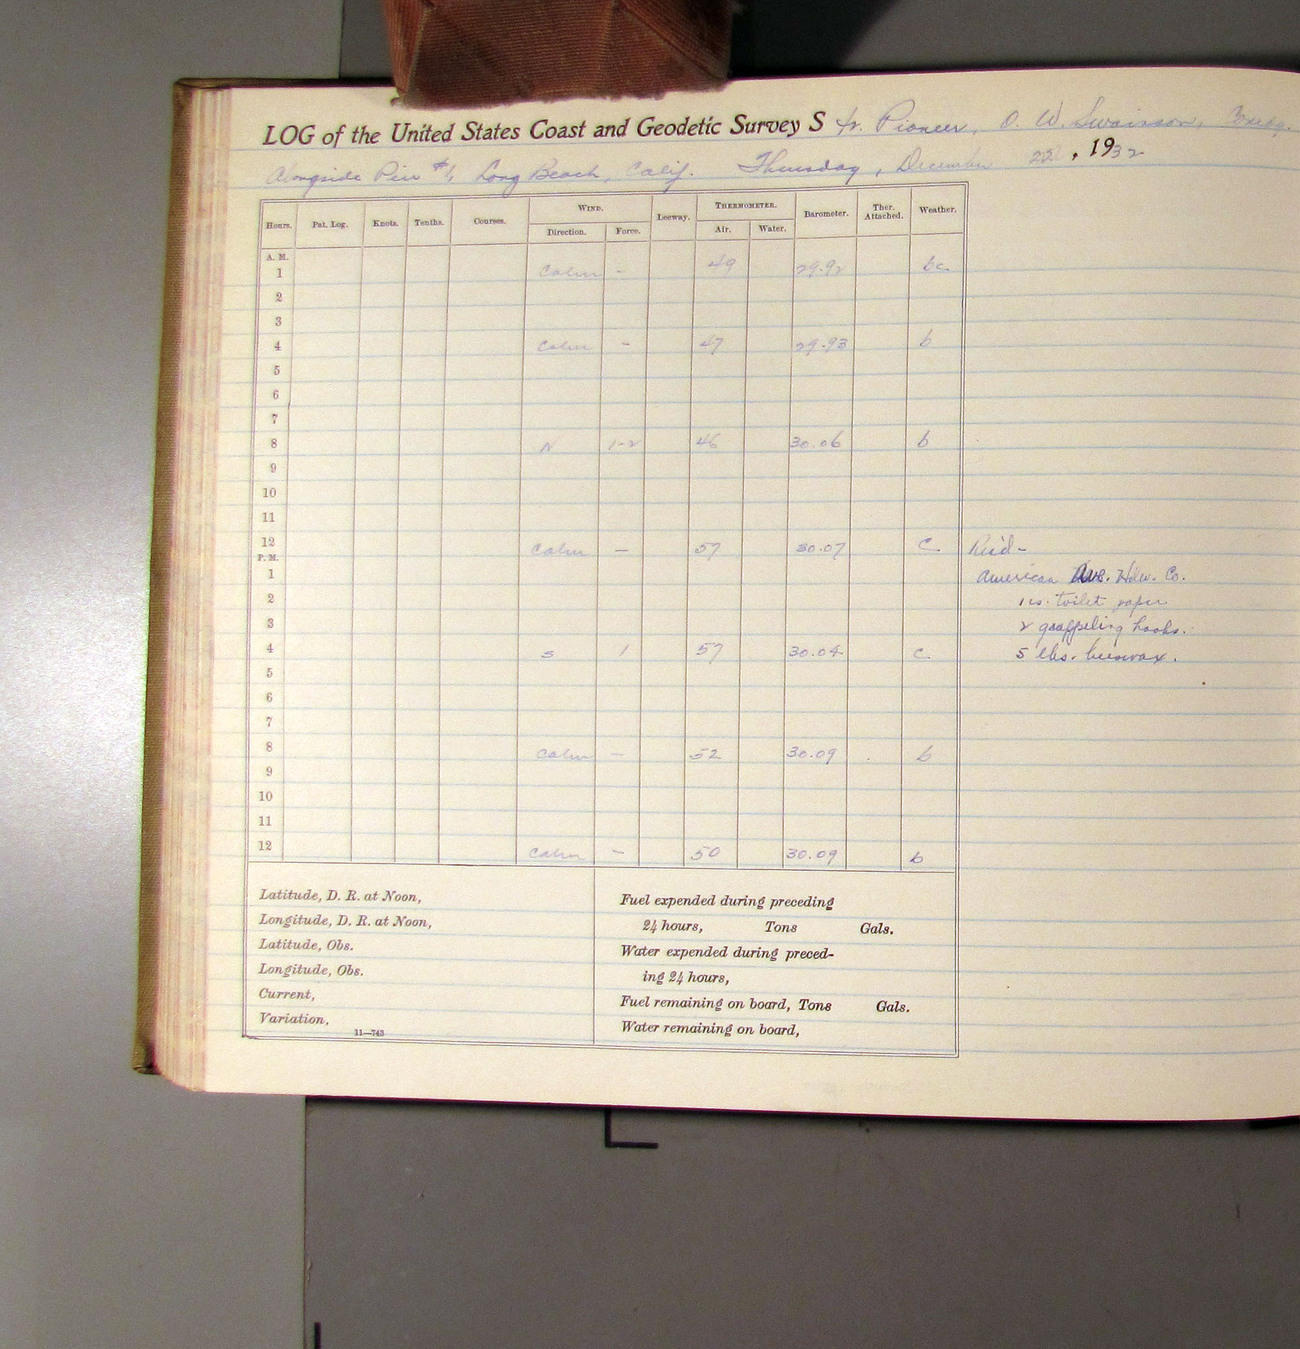 LOG of the United States Coast and Geodetic Survey S tr. Pioneer, O. W. Swainson, Comdg.
Alongside Pier #1, Long Beach, Calif. Thursday, December 22, 1932
Hours. Pat. Log. Knots. Tenths. Courses. WIND. Leeway. THERMOMETER. Barometer. Ther. Attached. Weather.
Direction. Force. Air. Water.
A. M.
1 Calm - 49 29.92 bc
2
3
4 Calm - 47 29.93 b
5
6
7
8 N 1-2 46 30.06 b
9
10
11
12 Calm - 57 30.07 c Rec'd -
P. M.
1 American Ave. Hdw. Co.
2 1 cs. toilet paper
3 2 grappeling hooks.
4 S 1 57 30.04 c 5 lbs. beeswax.
5
6
7
8 Calm - 52 30.09 b
9
10
11
12 Calm - 50 30.09 b
Latitude, D. R. at Noon,
Longitude, D. R. at Noon,
Latitude, Obs.
Longitude, Obs.
Current,
Variation,
11—743
Fuel expended during preceding
24 hours, Tons Gals.
Water expended during preced-
ing 24 hours,
Fuel remaining on board, Tons Gals.
Water remaining on board,